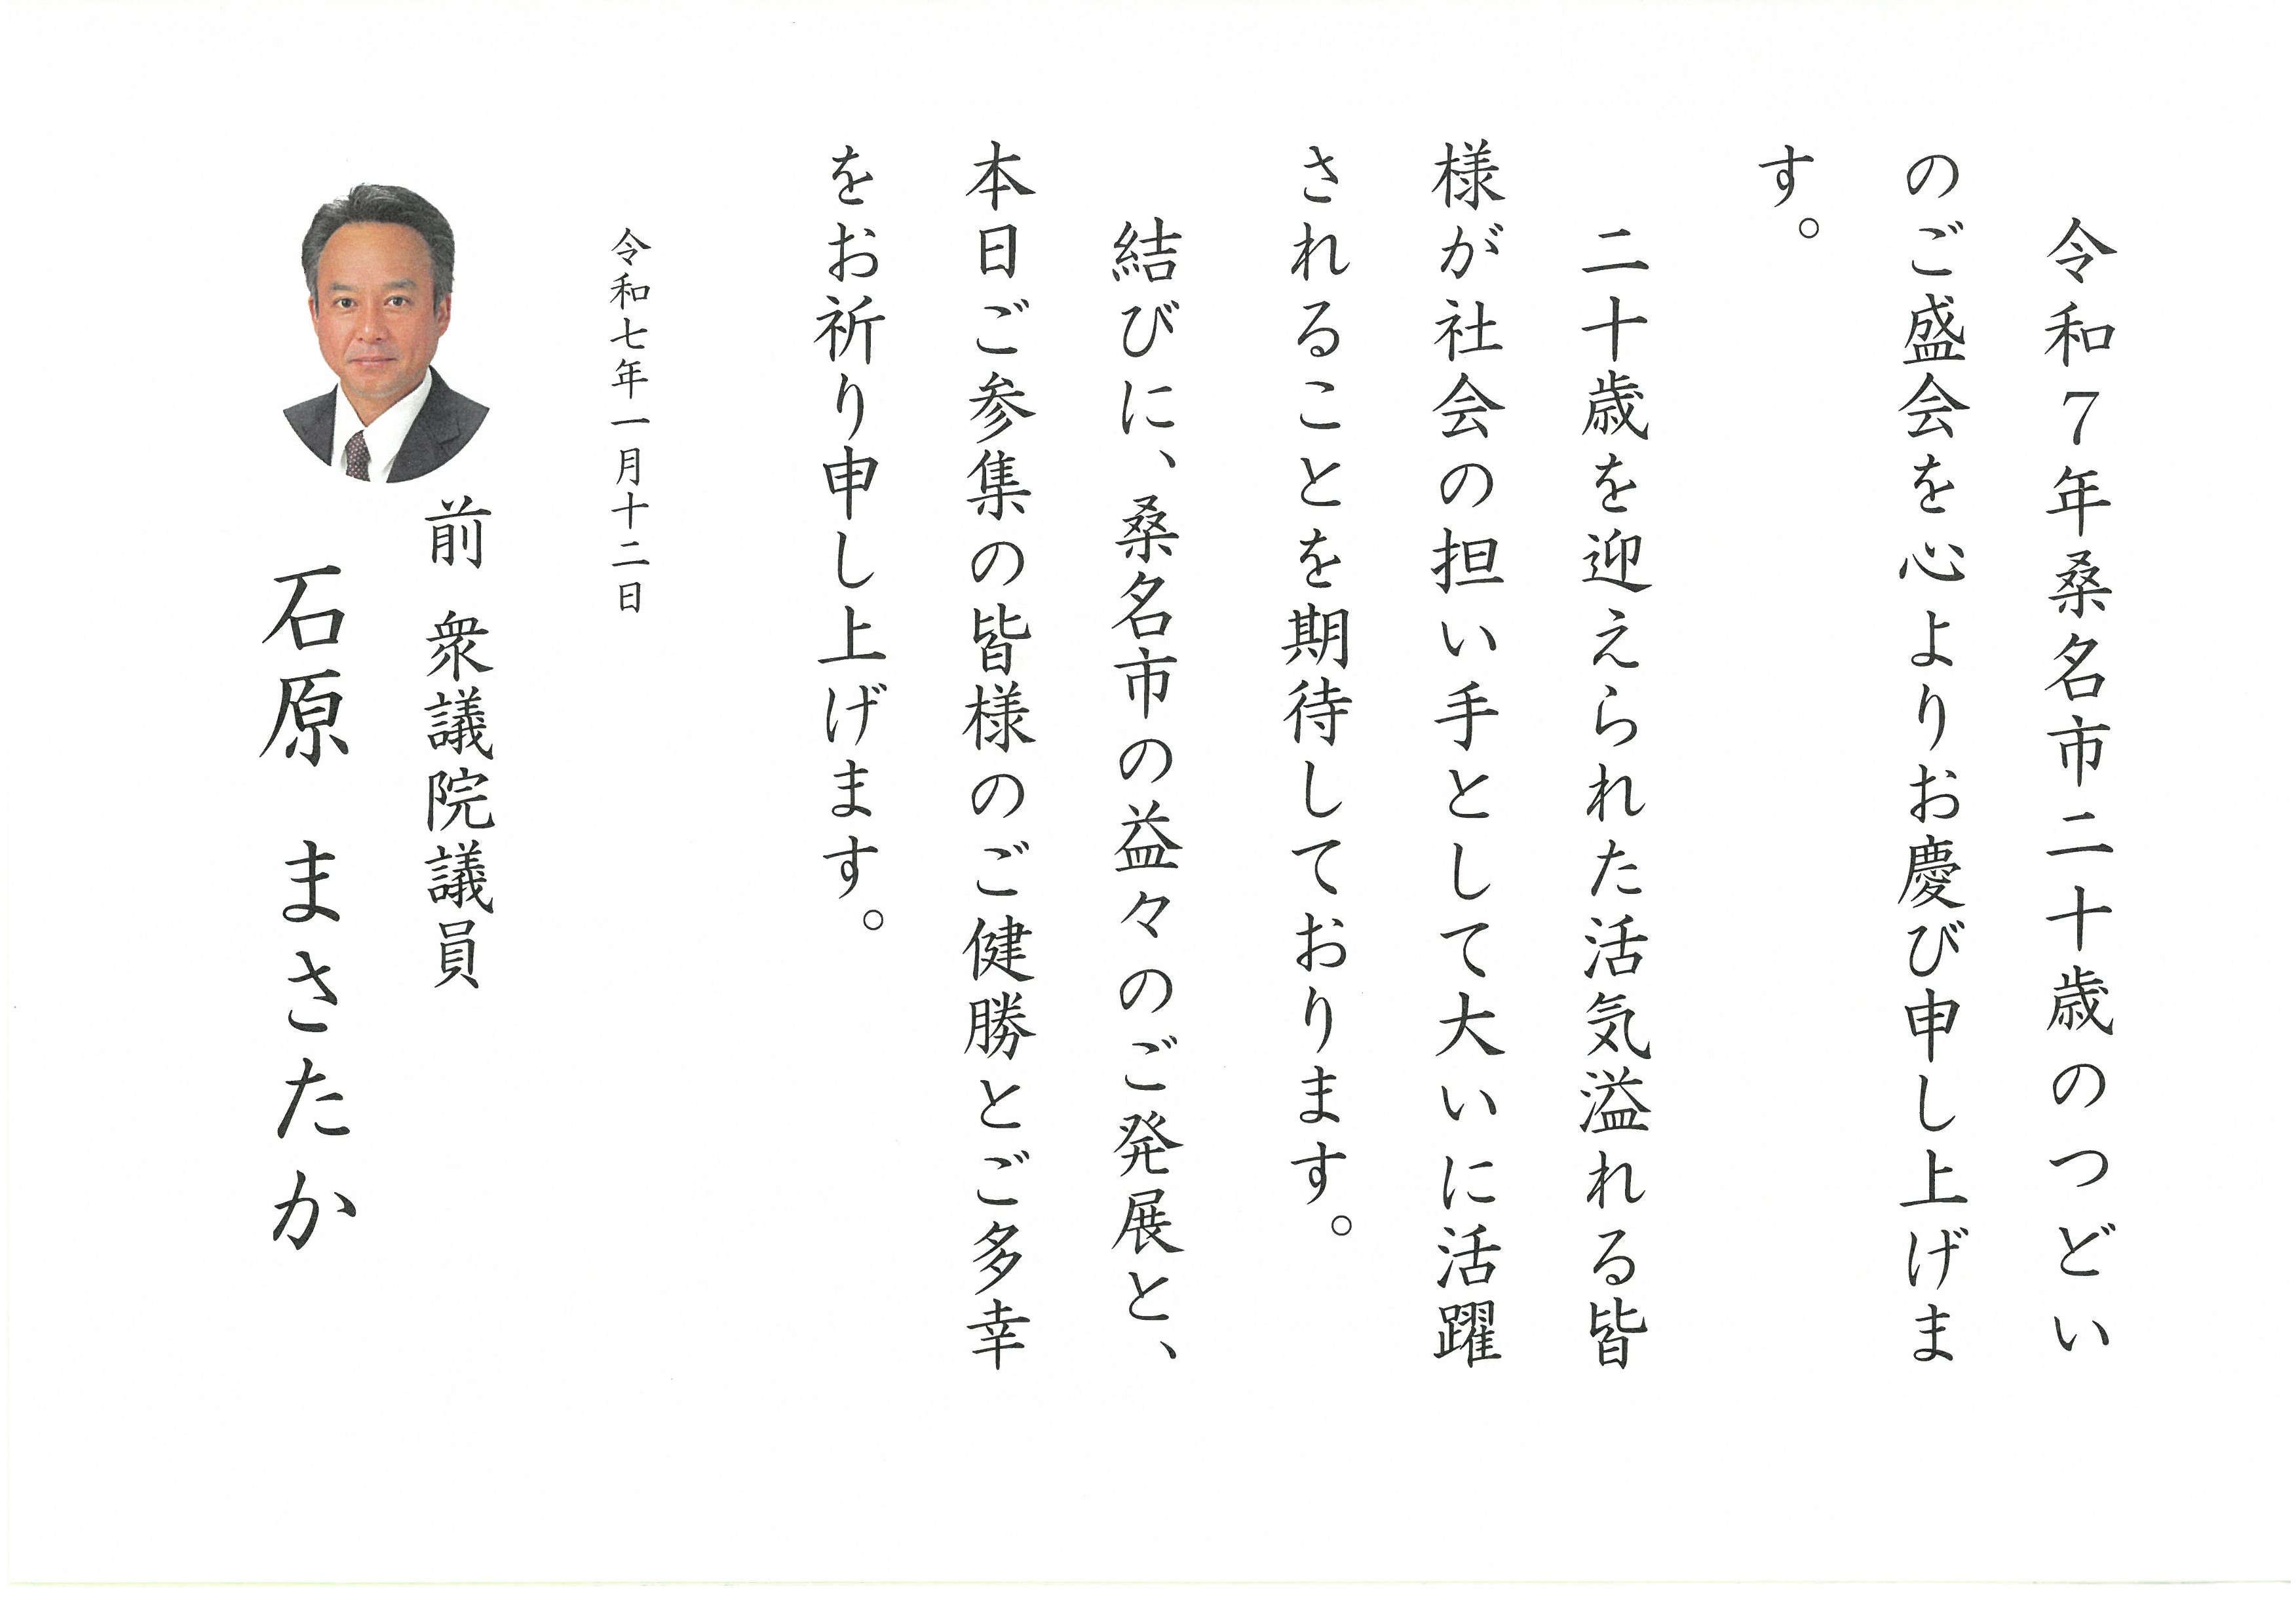 令和７年桑名市二十歳のつどい
のご盛会を心よりお慶び申し上げま
す。
二十歳を迎えられた活気溢れる皆
様が社会の担い手として大いに活躍
されることを期待しております。
結びに、桑名市の益々のご発展と、
本日ご参集の皆様のご健勝とご多幸
をお祈り申し上げます。
令和七年一月十二日
前 衆議院議員
石原 まさたか